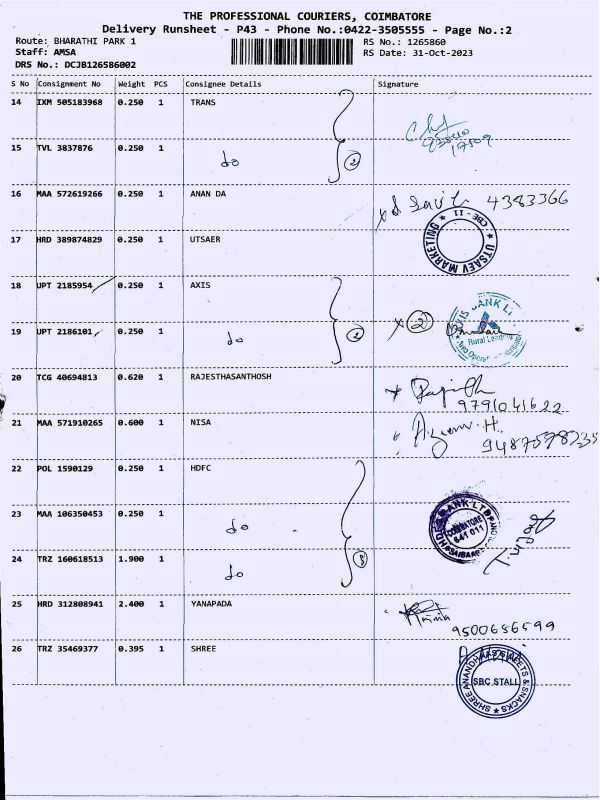 THE PROFESSIONAL COURIERS, COIMBATORE
Delivery Runsheet - P43 - Phone No.:0422-3505555 - Page No.:2
Route: BHARATHI PARK 1 RS No.: 1265860
Staff: AMSA RS Date: 31-Oct-2023
DRS No.: DCJB126586002
S No Consignment No Weight PCS Consignee Details Signature
14 IXM 505183968 0.250 1 TRANS
15 TVL 3837876 0.250 1 do 2
16 MAA 572619266 0.250 1 ANAN DA 4383366
17 HRD 389874829 0.250 1 UTSAER CBE - 11 ★ UTSAEV MARKETING ★
18 UPT 2185954 0.250 1 AXIS
19 UPT 2186101 0.250 1 do 2 x 2 Rural Lending
20 TCG 40694813 0.620 1 RAJESTHASANTHOSH
9791041622
21 MAA 571910265 0.600 1 NISA
9487578235
22 POL 1590129 0.250 1 HDFC
23 MAA 106350453 0.250 1 do HDFC BANK LTD COIMBATORE 641 011
24 TRZ 160618513 1.900 1 do
25 HRD 312808941 2.400 1 YANAPADA
9500686599
26 TRZ 35469377 0.395 1 SHREE SHREE ANANDHAAS SWEETS & SNACKS SBC STALL